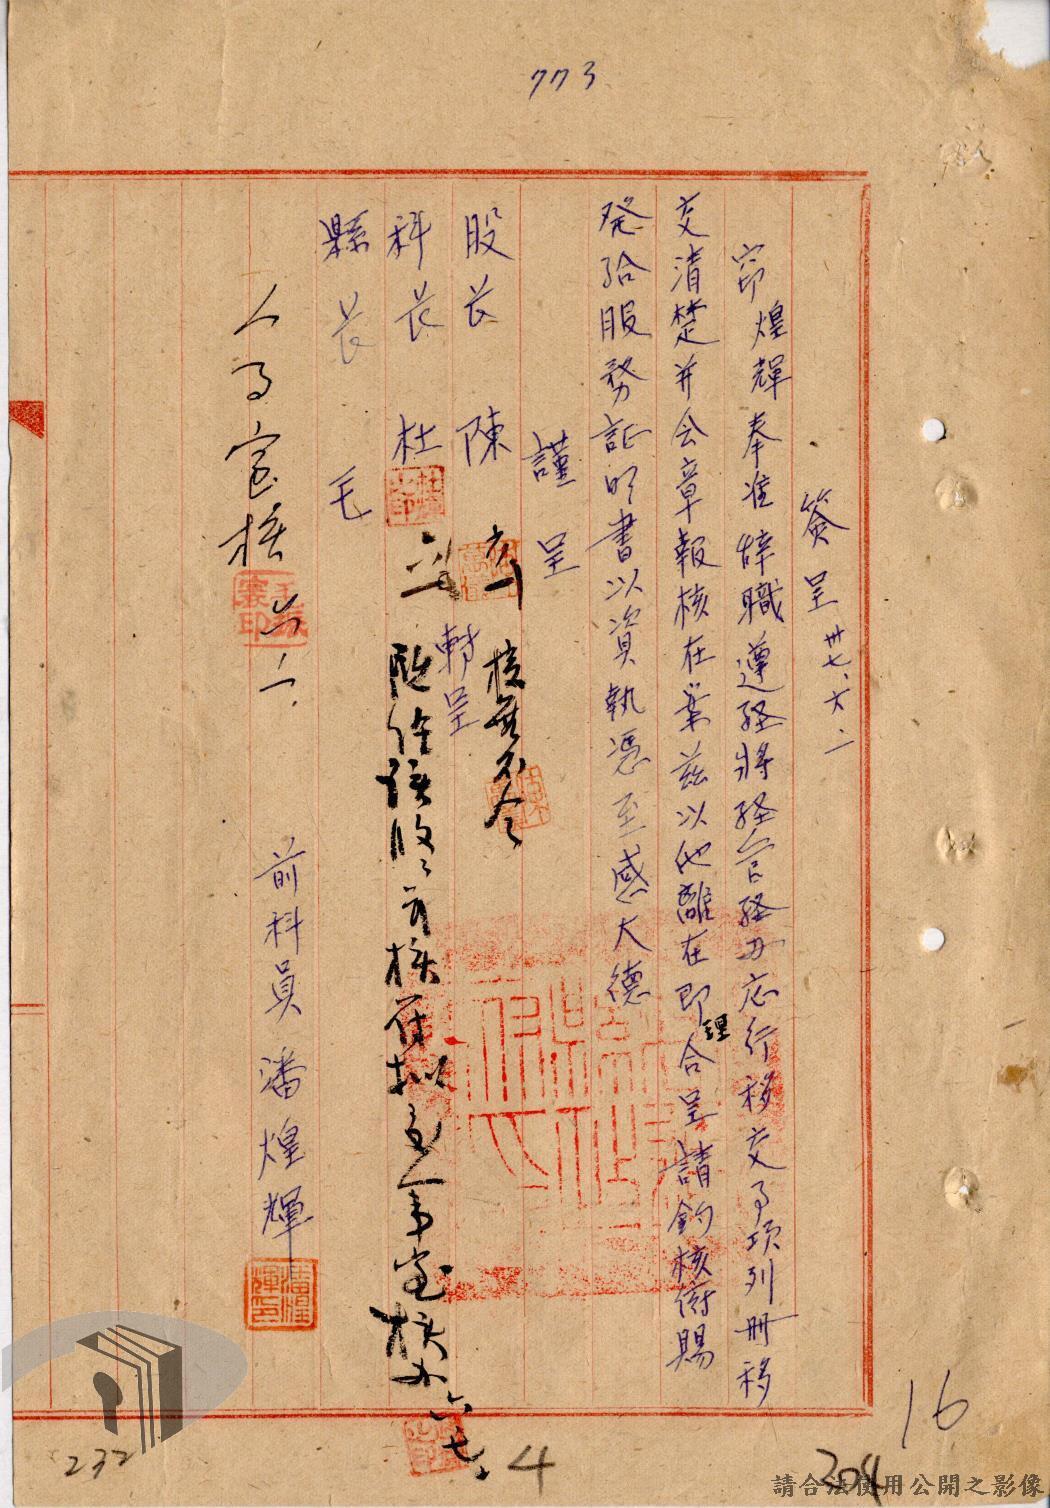 773
簽呈 卅七、六、二
竊煌輝奉准辞職遵經將經管經办应行移交事項列册移
交清楚并会章報核在案茲以他離在即理合呈請鈞核俯賜
発給服務証明書以資執憑至感大德
謹呈
股长 陳 轉呈
科长 杜
縣长 毛
核無不合
人事室核 六、二
前科員 潘煌輝
潘煌輝印
六、七、
16
232
4
304
請合法使用公開之影像